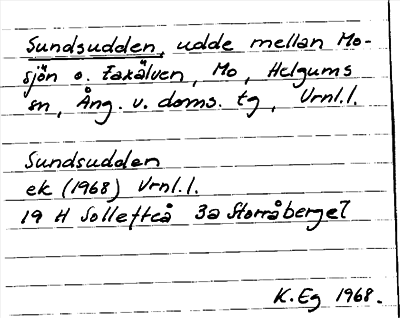 Sundsudden, udde mellan Mo-
sjön o. Faxälven, Mo, Helgums
sn, Ång. v. doms. tg, Vrnl.l.
Sundsudden
ek (1968) Vrnl.l.
19 H Sollefteå 3a Storråberget
K.Eg 1968.